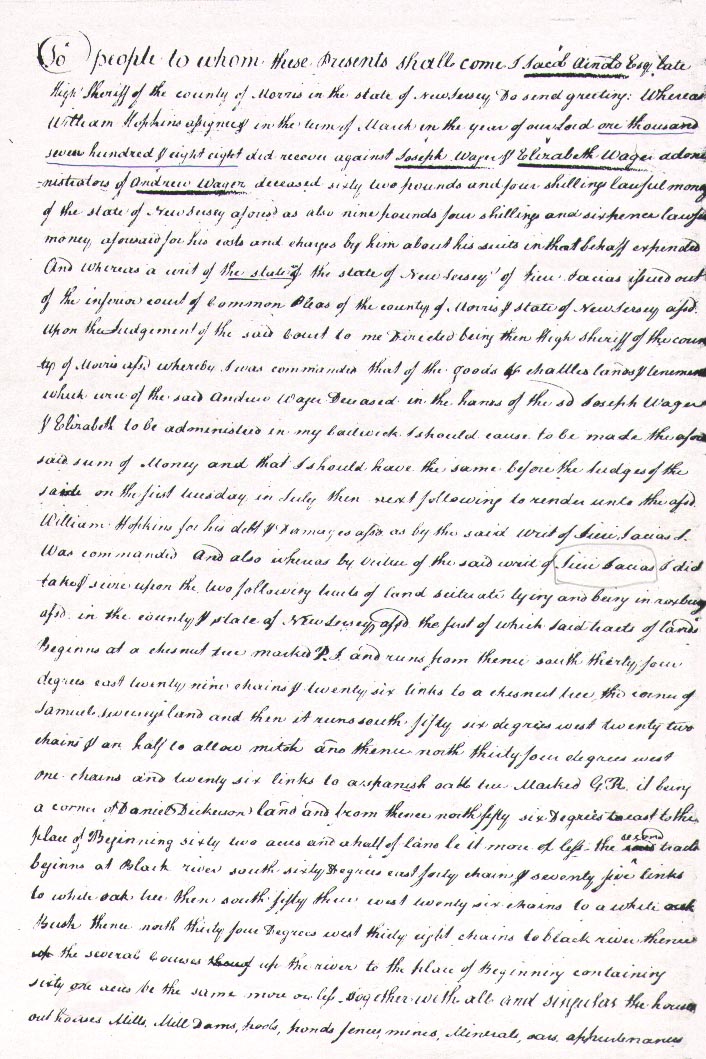 To people to whom these Presents shall come I Jacob Arnold Esqr. late
High Sheriff of the county of Morris in the state of New Jersey Do send greeting: Whereas
William Hopkins assignee in the term of March in the year of our Lord one thousand
seven hundred & eight eight did recover against Joseph Wager & Elizabeth Wager admi
-nistrators of Andrew Wager deceased sixty two pounds and four shillings lawful money
of the state of New Jersey aforsd as also nine pounds four shillings and sixpence lawful
money aforesaid for his costs and charges by him about his suits in that behalf expended
And whereas a writ of the state of the state of New Jersey of Fieri Facias issued out
of the inferior court of Common Pleas of the county of Morris & state of New Jersey afsd.
upon the Judgement of the said Court to me Directed being then High Sheriff of the coun
ty of Morris afsd whereby I was commanded that of the goods & chattles lands & tenements
which were of the said Andrew Wager Deceased in the hands of the sd Joseph Wager
& Elizabeth to be administed in my bailwick I should cause to be made the afore
said sum of Money and that I should have the same before the Judges of the
said on the first tuesday in July then next following to render unto the afsd.
William Hopkins for his debt & Damages afsd as by the said writ of Fieri Facias I
Was commanded And also whereas by virtue of the said writ of Fieri Facias I did
take & seize upon the two following tracts of land situate lying and being in roxbury
afsd. in the county & state of New Jersey afsd the first of which said tracts of land
Beginns at a chesnut tree marked P. I. and runs from thence south thirty four
degrees east twenty nine chains & twenty six links to a chesnut tree, the corner of
Samuel land and then it runs south fifty six degrees west twenty two
chains & an half to and thence north thirty four degrees west
one chains and twenty six links to a spanish oak tree Marked G.R. it being
a corner of Daniel Dickerson land and from thence north fifty six Degrees east to the
place of Beginning sixty two acres and a half of land be it more of less. the second tract
beginns at Black river south sixty Degrees east forty chain & seventy five links
to white oak tree then south fifty three west twenty six chains to a white oak
Bush thence north thirty four Degrees west thirty eight chains to black river thence
the several courses up the river to the place of Beginning containing
sixty one acres be the same more or less. Together with all and singular the houses
out houses Mills, Mill Dams, pools, ponds fences, mines, Minerals, oars, appurtenances